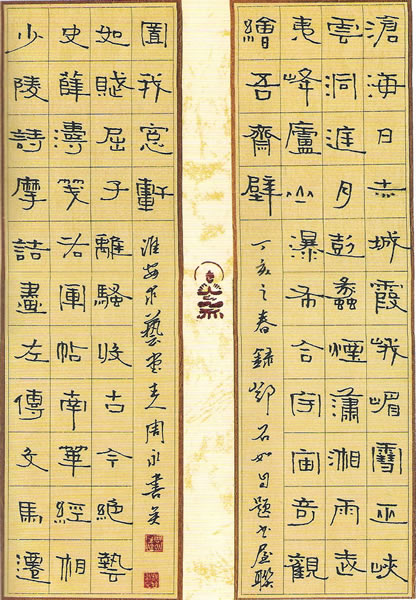 滄海日赤城霞峨嵋雪巫峽
雲洞庭月彭蠡煙瀟湘雨武
夷峰廬山瀑布合宇宙奇觀
繪吾齋壁
丁亥之春錄鄧石如自題書屋聯
少陵詩摩詰畫左傳文馬遷
史薛濤箋右軍帖南華經相
如賦屈子離騷收古今絕藝
置我窗軒
淮安 藝 周永書